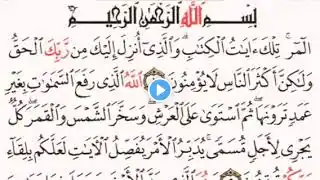 بِسْمِ اللَّهِ الرَّحْمَٰنِ الرَّحِيمِ
الٓمٓر ۚ تِلْكَ ءَايَٰتُ الْكِتَٰبِ ۗ وَالَّذِىٓ أُنزِلَ إِلَيْكَ مِن رَّبِّكَ الْحَقُّ
وَلَٰكِنَّ أَكْثَرَ النَّاسِ لَا يُؤْمِنُونَ اللَّهُ الَّذِى رَفَعَ السَّمَٰوَٰتِ بِغَيْرِ
عَمَدٍ تَرَوْنَهَا ۖ ثُمَّ اسْتَوَىٰ عَلَى الْعَرْشِ ۖ وَسَخَّرَ الشَّمْسَ وَالْقَمَرَ ۖ كُلٌّ
يَجْرِى لِأَجَلٍ مُّسَمًّى ۚ يُدَبِّرُ الْأَمْرَ يُفَصِّلُ الْءَايَٰتِ لَعَلَّكُم بِلِقَآءِ